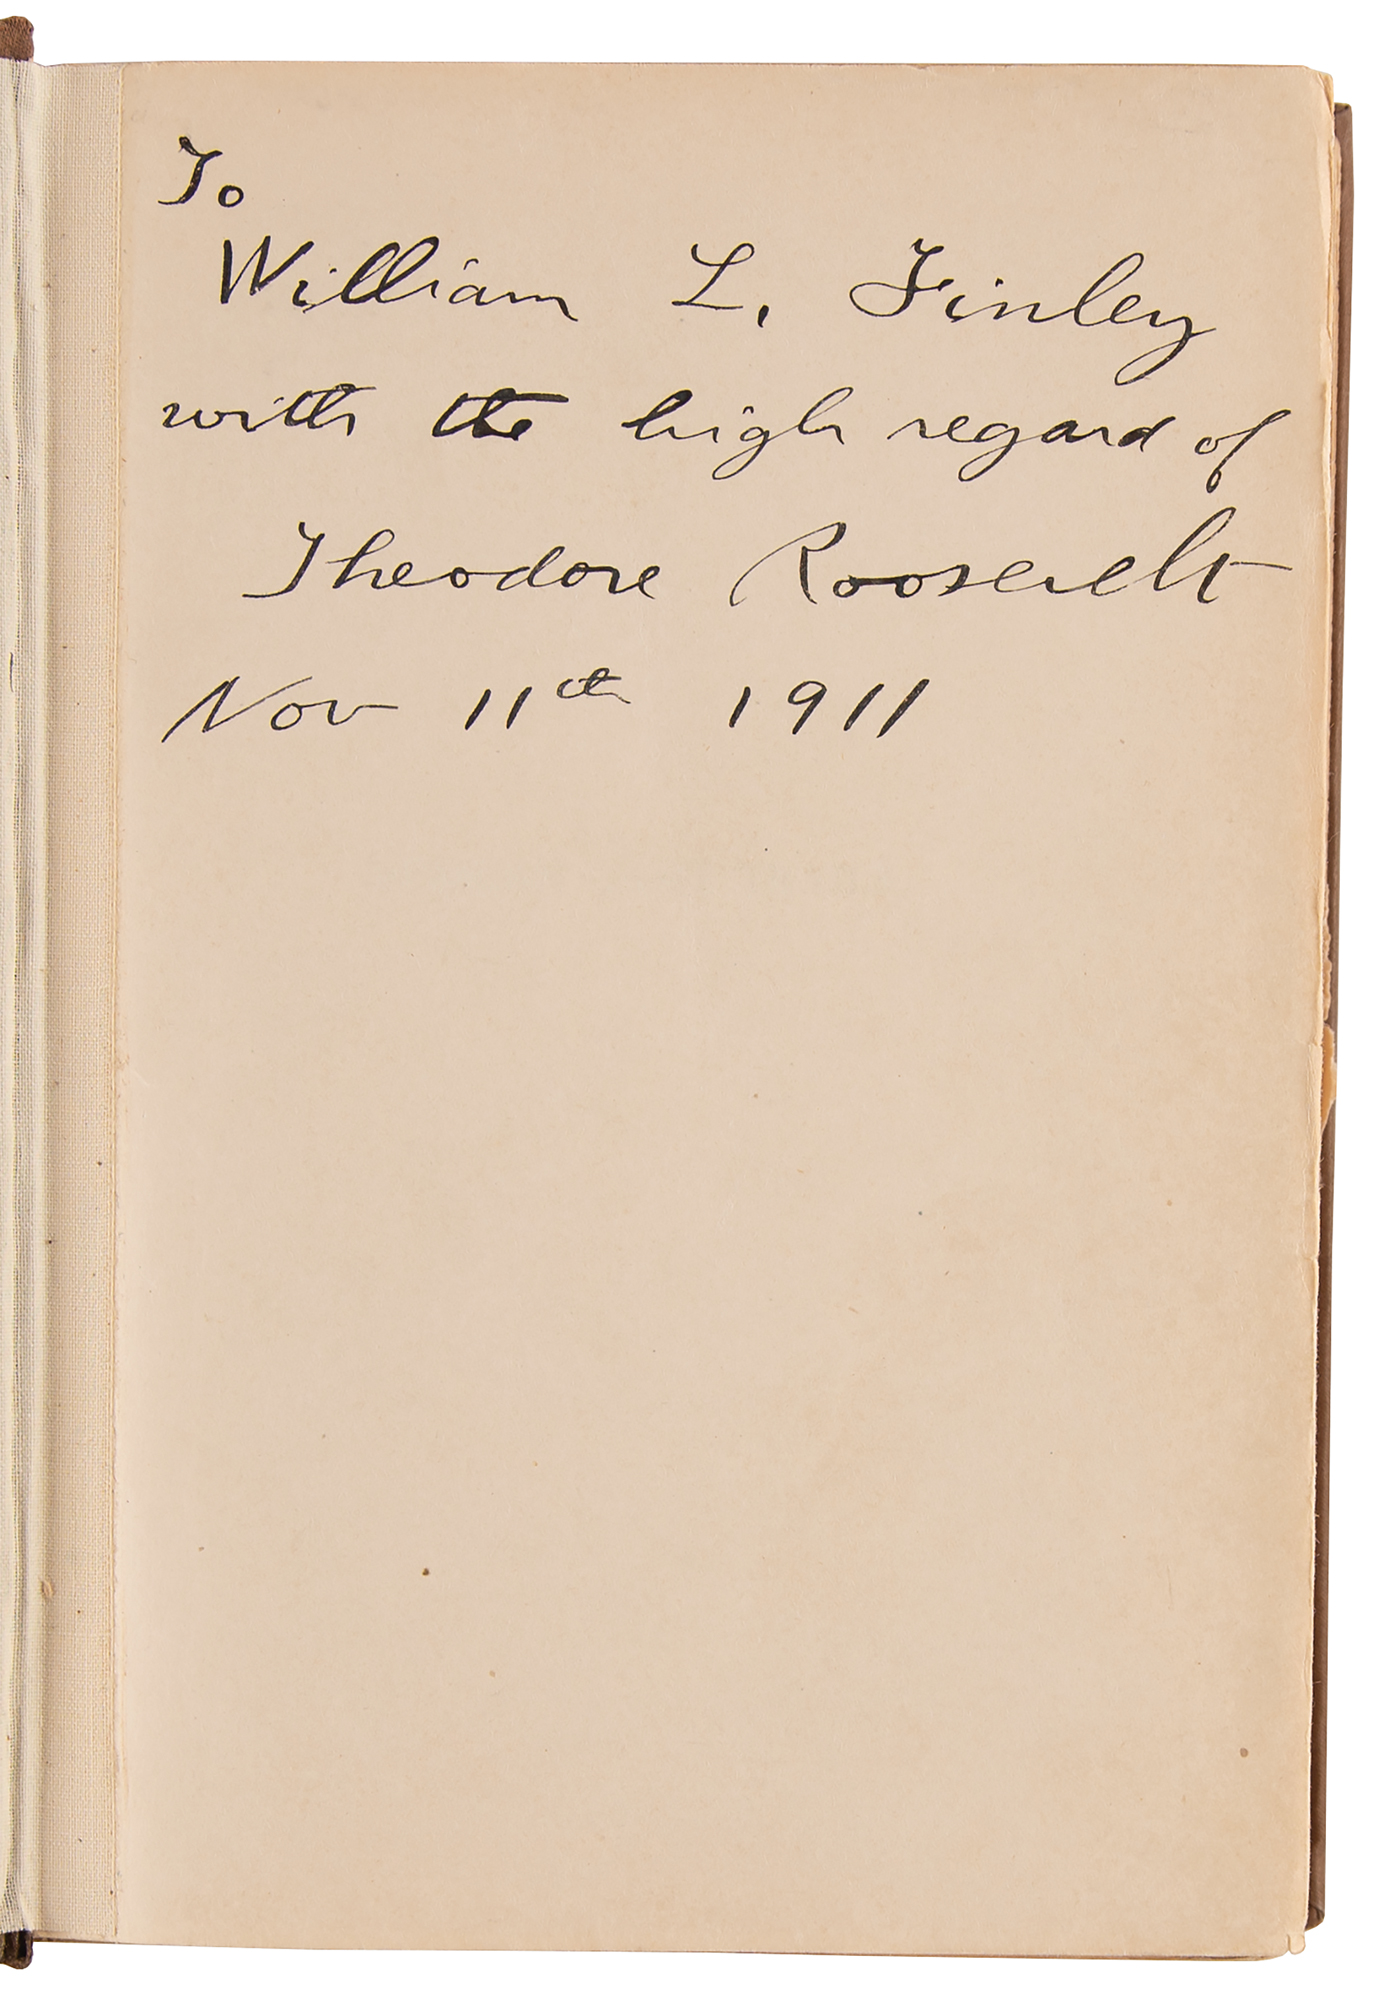 To
William L. Finley
with the high regard of
Theodore Roosevelt
Nov 11th 1911